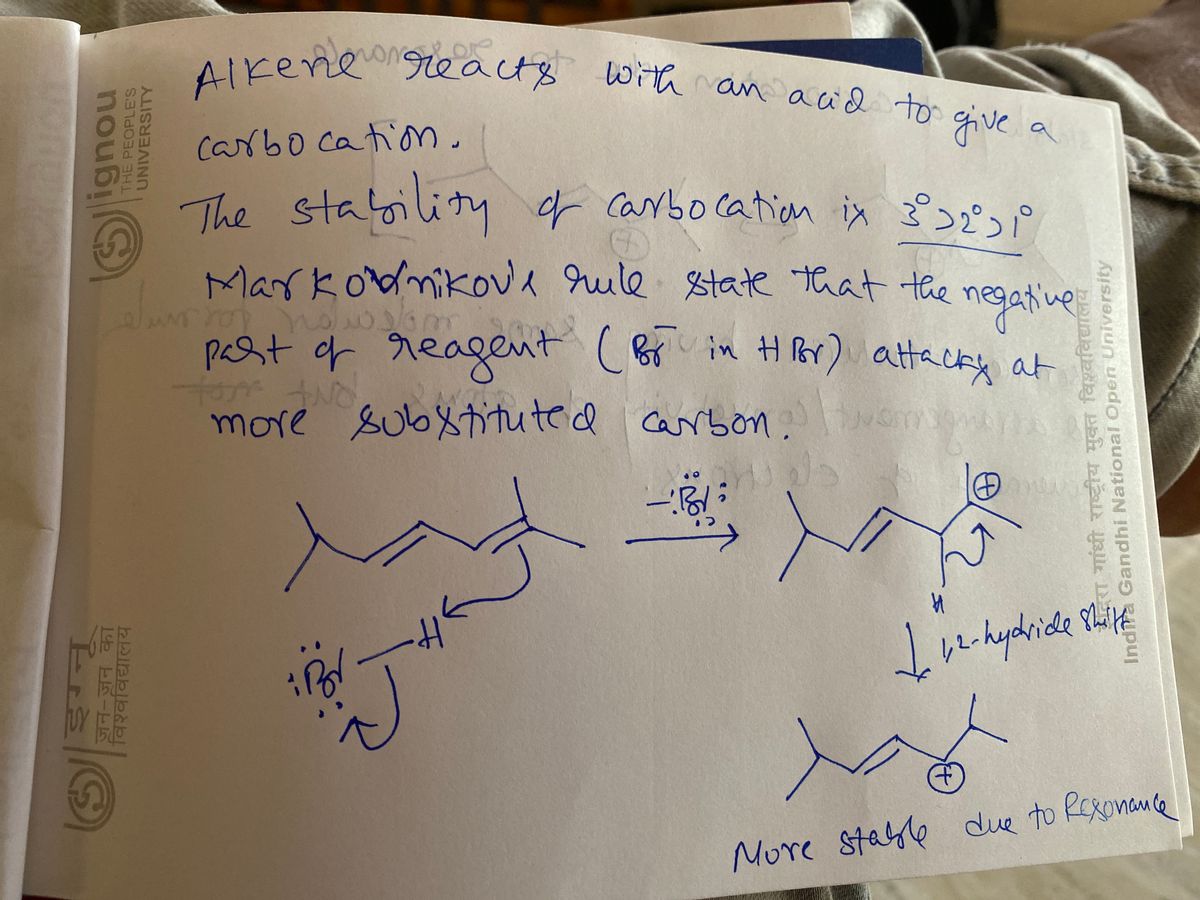 Alkene reacts with an acid to give a
carbocation.
The stability of carbocation is 3°>2°>1°
Markovnikov's rule state that the negative
part of reagent (Br⁻ in HBr) attacks at
more substituted carbon.
-:Br:
⊕
:Br—H
H
1,2-hydride shift
⊕
More stable due to Resonance
ignou
THE PEOPLE'S
UNIVERSITY
इग्नू
जन-जन का
विश्वविद्यालय
इंदिरा गांधी राष्ट्रीय मुक्त विश्वविद्यालय
Indira Gandhi National Open University